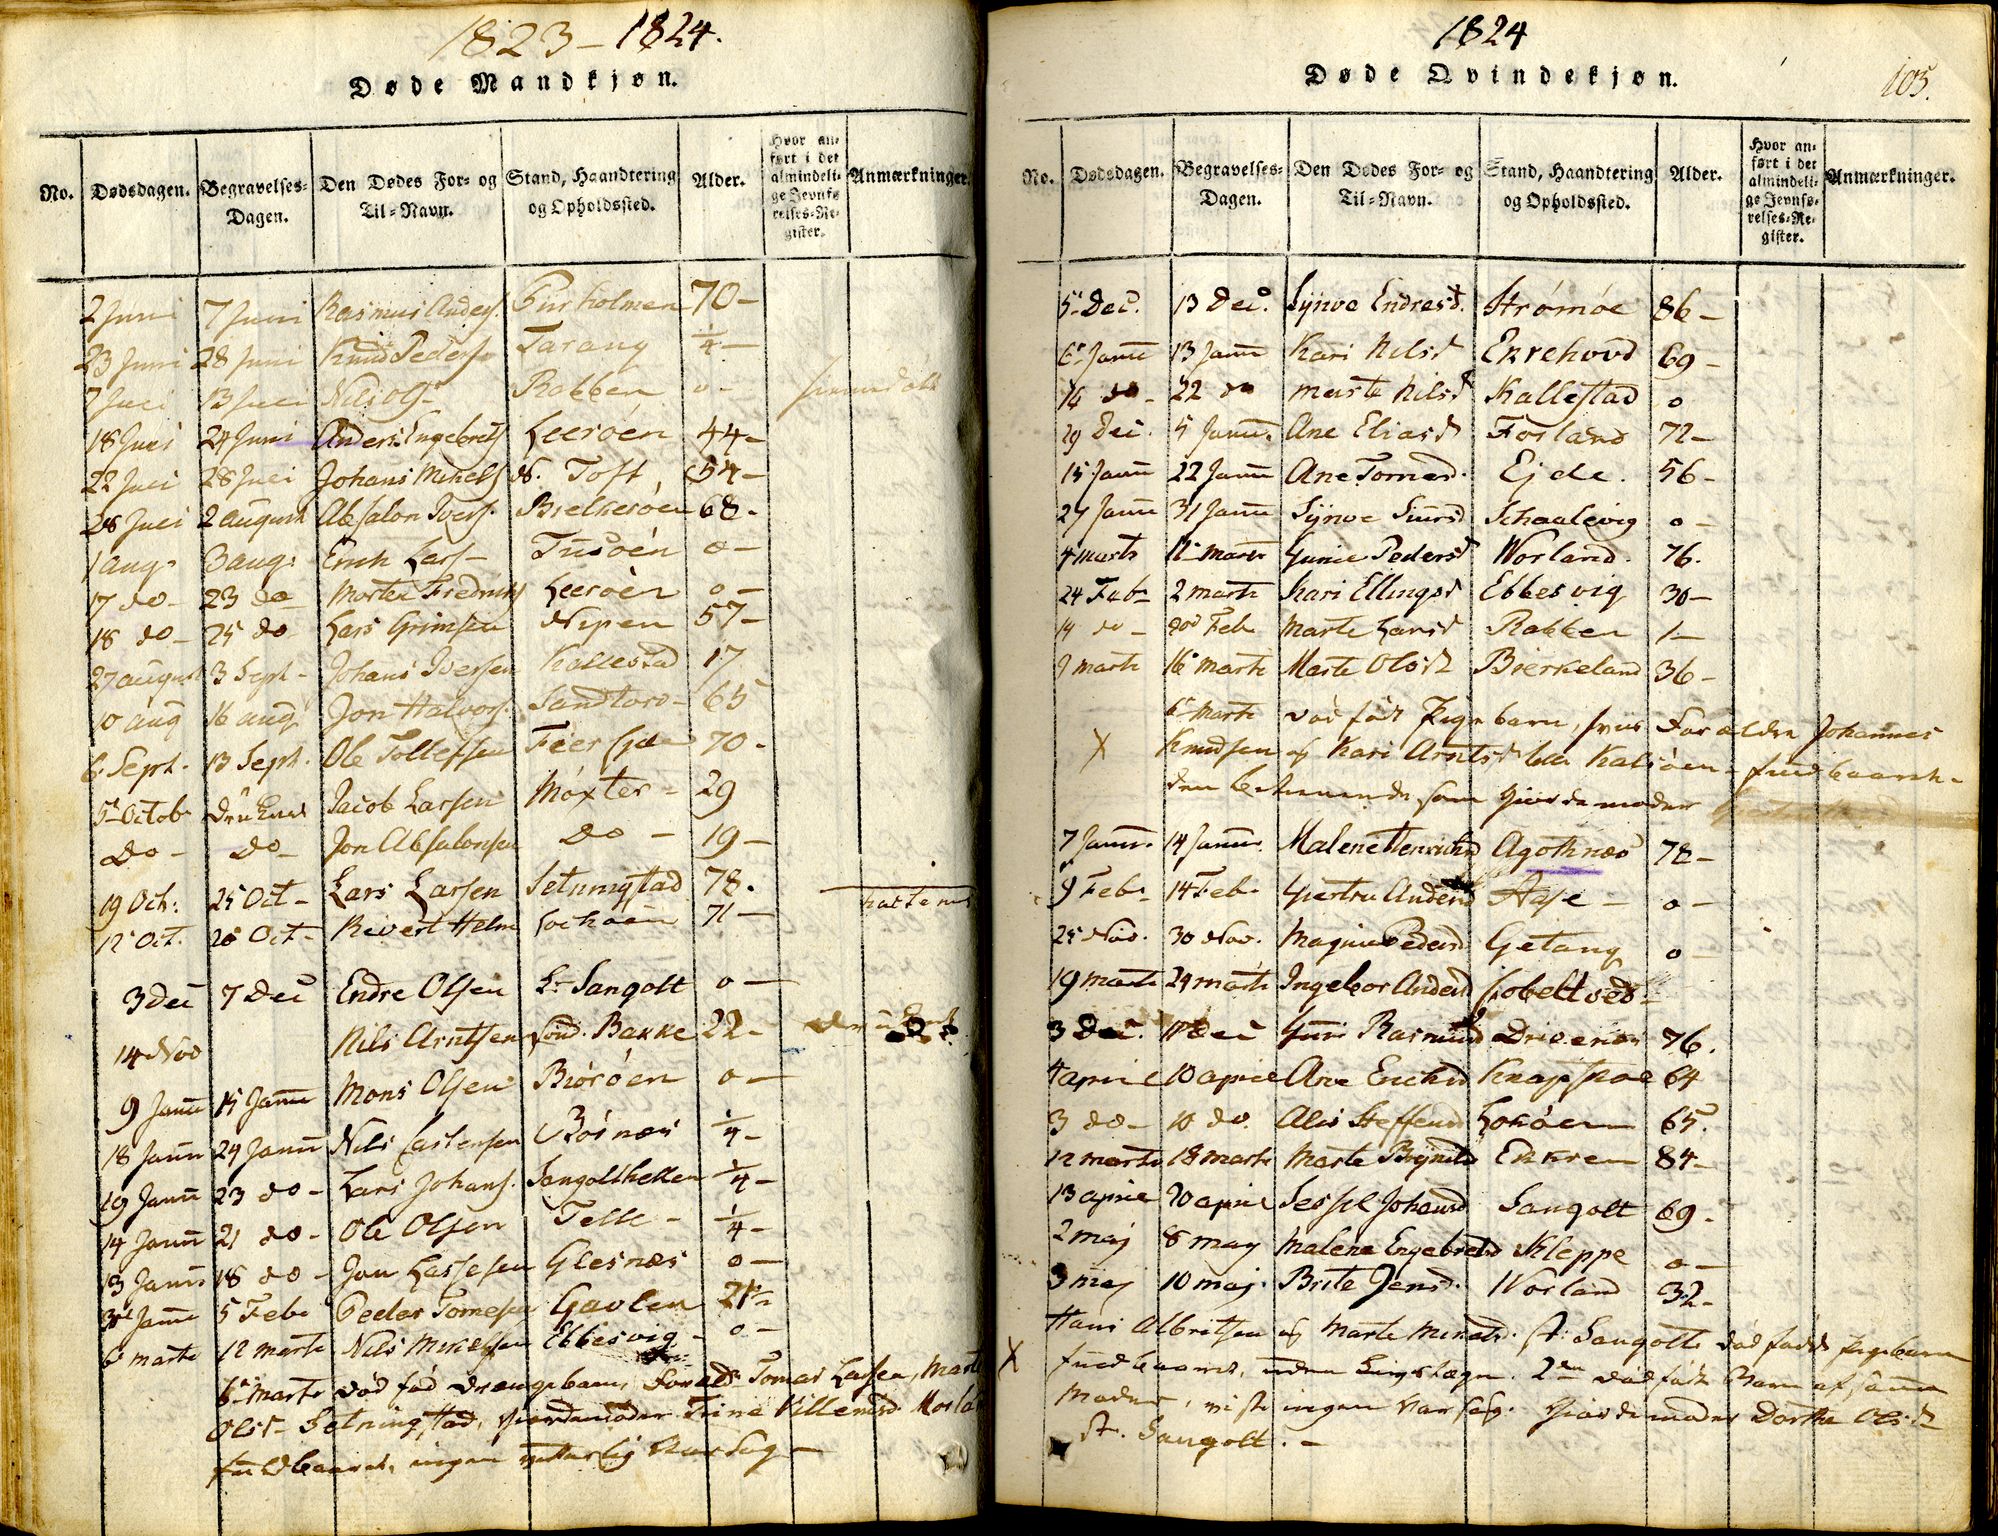 1823 – 1824.
Døde Mandkjøn.
No. Dødsdagen. Begravelses-Dagen. Den Dødes For- og Til-Navn. Stand, Haandtering og Opholdssted. Alder. Hvor anført i det almindelige Jevnførelses-Register. Anmærkninger.
2 Juni 7 Juni Rasmus Anders. Furholmen 70 –
23 Juni 28 Juni Knud Peders Tarang 1/4 –
7 Juli 13 Juli Nils Ols Rabben o –
18 Juli 24 Juni Anders Ingebrets Leeröen 44 –
22 Juli 28 Juli Johans Mikels N. Toft 54 –
28 Juli 2 august Absalon Ivers. Bielkeröen 68 –
1 aug. 3 aug: Erich Lars – Tüsöen o –
17 do – 23 do Morten Fredriks Leeröen o –
18 do – 25 do Lars Grimsen Nipen 57 –
27 august 3 Sept – Johans Iversen Kallestad 17
10 aug 16 aug Jon Halvors. Sandtorv – 65
6 Sept. 13 Sept. Ole Tollefsen 70 –
5 Octob Jacob Larsen Möxter – 29
Do – Do – Jon Absalonsen Do – 19 –
19 Oct: 25 Oct – Lars Larsen Setningstad 78.
12 Oct. 20 Oct – Revert Helm 71 –
3 Dec 7 Dec Endre Olsen L. Sangolt o –
14 Nov Nils Arntsen Bakke 22 –
9 Janu 15 Janu Mons Olsen Biöröen o –
18 Janu 24 Janu Nils Castensen Bösnæs 1/4 –
19 Janu 23 do – Lars Johans. Sangoltkellen 1/4 –
14 Janu 21 do – Ole Olsen Telle – 1/4 –
13 Janu 18 do – Jon Lassesen Glesnæs o –
Janu 5 Feb Peder Tomesen Gavlen
6 marts 12 marts Nils Mikelsen Ebbesvig – o –
6 Marts död fød drængebarn, Foræld: Tomas Larsen, Marte
Olsd – Setningstad, Giordemoder Trine Villemsd.
fuldbaaret, ingen Aarsag –
1824
105.
Døde Qvindekjøn.
No. Dødsdagen. Begravelses-Dagen. Den Dødes For- og Til-Navn. Stand, Haandtering og Opholdssted. Alder. Hvor anført i det almindelige Jevnførelses-Register. Anmærkninger.
5 Dec. 13 Dec. Synve Endresd. Strömöe 86 –
6 Janu 13 Janu Kari Nilsd Ekrehovd 69 –
16 do – 22 do marte Nilsd Kallestad o
29 Dec. 5 Janu. Ane Eliasd Forland 72 –
15 Janu 22 Janu Ane Tomesd. Ejde. 56 –
Janu 31 Janu Synve Siursd Schaalevig o –
4 marts marts Gunie Pedersd Worland. 76.
24 Feb – 2 marts Kari Ellingsd Ebbesvig 30 –
14 do – Feb Marte Larsd Rabben 1 –
9 marts 16 marts Marte Olsd Bierkeland 36 –
X 6 Marts död född Pigebarn, hvis Forældre Johannes
Knudsen og Kari Arntsd lille Kalsöen – fuldbaaret –
den bekiendte som Giordemoder
7 Janu. 14 Janu. Malene Henriksd Agotnæs 78 –
9 Feb – 14 Feb Giertru Andersd Aase – o –
25 Nov. 30 Nov. Magnie Pedersd Getang o –
19 marts 24 marts Ingebor Andersd Cobeltved –
3 Dec. 11 Dec Guri Rasmusd Drivenæs 76.
4 april 10 april Ane Erichsd Knapskoe 64
3 do – 10 do. Alis Steffensd Loköen 65.
12 marts 18 marts Marte Brynilsd Ekkren 84 –
13 april 20 april Sessel Johansd Sangolt 69 –
2 maj 8 may Malene Engebretsd Kleppe o –
3 maj 10 maj. Brite Jensd. Worland 32 –
X Hans Albritsen og Marte Monsd. St. Sangolts död född pigebarn
fuldbaaret, uden Livstegn. 2den död född Barn af samme
Moder, viste ingen Aarsag. Giordemoder Dorthe Olsd
St. Sangolt. –